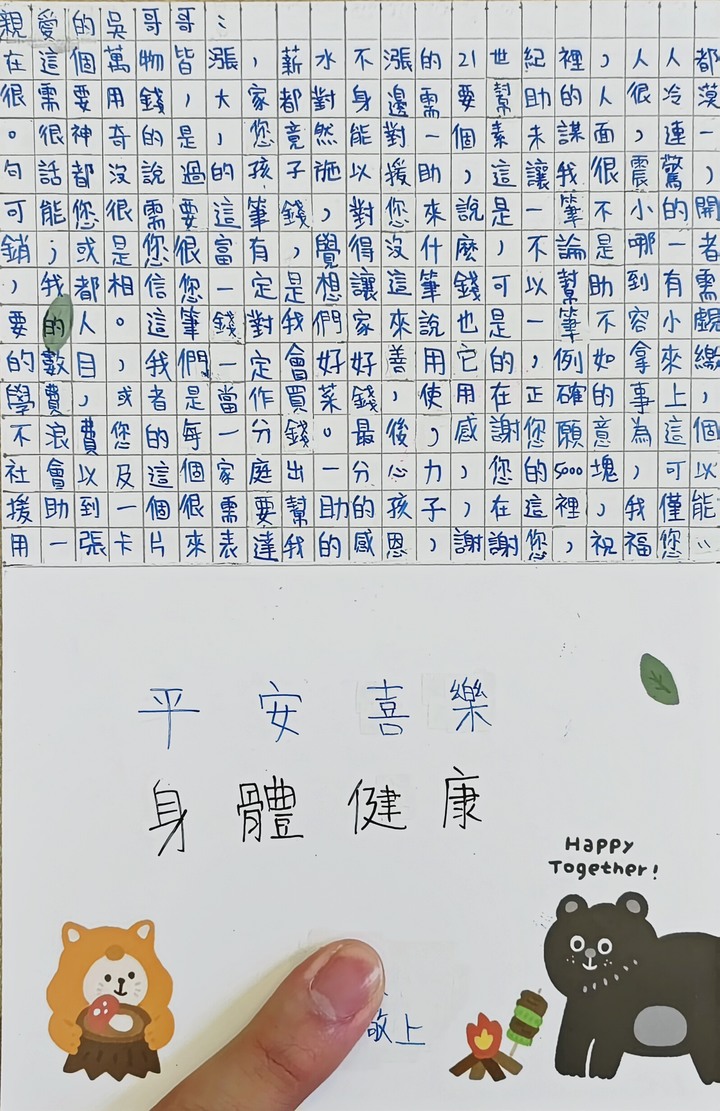 親愛的吳哥哥：
在這個萬物皆漲，薪水不漲的21世紀裡，人人都
很需要用錢，大家都對身邊需要幫助的人很冷漠
。很神奇的是，您竟然能對一個素未謀面，連一
句話都沒說過的孩子施以援助，這讓我很震驚，
可能您很需要這筆錢，對您來說是一筆不小的開
銷；或是您很富有，覺得沒什麼，不論是哪一者
，我都相信您一定是想讓這筆錢可以幫助到有需
要的人。這筆錢對我們家來說也是一筆不容小覷
的數目，我們一定會好好善用它的，例如拿來繳
學費，或者是當作買菜錢，使用在正確的事上，
不浪費您的每一分錢。最後，感謝您願意為這個
社會以及這個家庭出一分心力，您的5000塊，可以
援助到一個很需要幫助的孩子，在這裡，我僅能
用一張卡片來表達我的感恩，謝謝您，祝福您
平安喜樂
身體健康
Happy
Together!
敬上